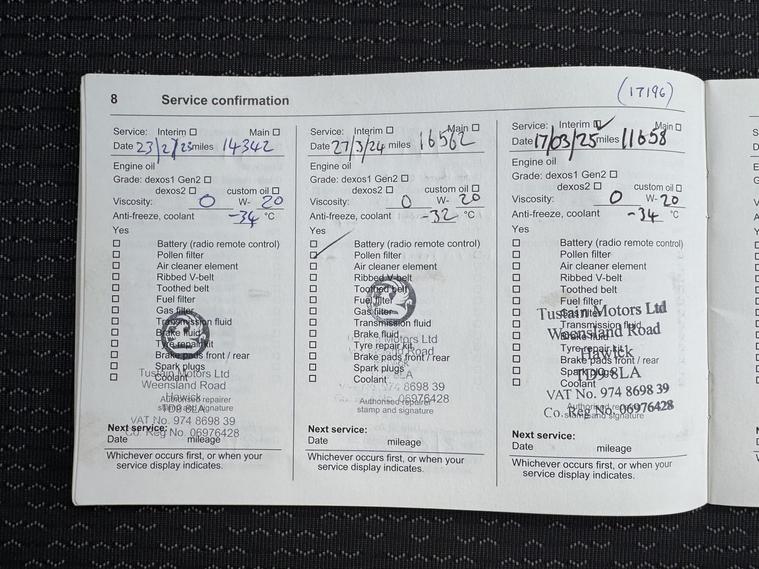 8 Service confirmation
(17196)
Service: Interim Main
Date 23/2/23 miles 14342
Engine oil
Grade: dexos1 Gen2
dexos2 custom oil
Viscosity: 0 W- 20
Anti-freeze, coolant -34 °C
Yes
Battery (radio remote control)
Pollen filter
Air cleaner element
Ribbed V-belt
Toothed belt
Fuel filter
Gas filter
Transmission fluid
Brake fluid
Tyre repair kit
Brake pads front / rear
Spark plugs
Coolant
Tustain Motors Ltd
Weensland Road
Hawick
Authorised repairer
stamp and signature
TD9 8LA
VAT No. 974 8698 39
Co. Reg No. 06976428
Next service:
Date mileage
Whichever occurs first, or when your
service display indicates.
Service: Interim Main
Date 27/3/24 miles 16562
Engine oil
Grade: dexos1 Gen2
dexos2 custom oil
Viscosity: 0 W- 20
Anti-freeze, coolant -32 °C
Yes
Battery (radio remote control)
Pollen filter
Air cleaner element
Ribbed V-belt
Toothed belt
Fuel filter
Gas filter
Transmission fluid
Brake fluid
Tyre repair kit
Brake pads front / rear
Spark plugs
Coolant
Motors Ltd
Road
LA
974 8698 39
06976428
Authorised repairer
stamp and signature
Next service:
Date mileage
Whichever occurs first, or when your
service display indicates.
Service: Interim Main
Date 17/03/25 miles 11658
Engine oil
Grade: dexos1 Gen2
dexos2 custom oil
Viscosity: 0 W- 20
Anti-freeze, coolant -34 °C
Yes
Battery (radio remote control)
Pollen filter
Air cleaner element
Ribbed V-belt
Toothed belt
Fuel filter
Gas filter
Transmission fluid
Brake fluid
Tyre repair kit
Brake pads front / rear
Spark plugs
Coolant
Tustain Motors Ltd
Weensland Road
Hawick
TD9 8LA
VAT No. 974 8698 39
Co. Reg No. 06976428
Authorised repairer
stamp and signature
Next service:
Date mileage
Whichever occurs first, or when your
service display indicates.